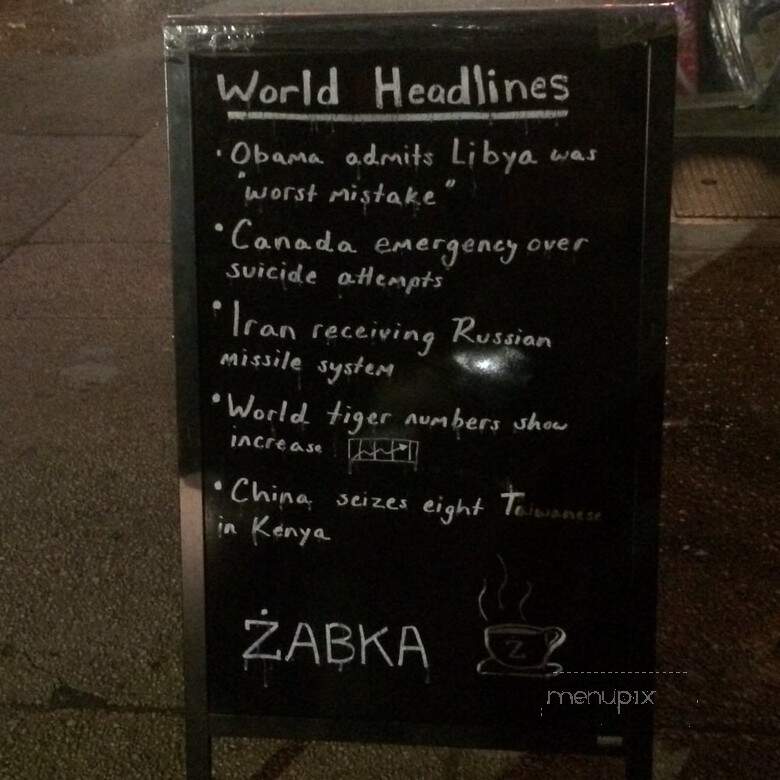 World Headlines
• Obama admits Libya was
"worst mistake"
• Canada emergency over
suicide attempts
• Iran receiving Russian
missile system
• World tiger numbers show
increase
• China seizes eight Taiwanese
in Kenya
ŻABKA
Z
menupix